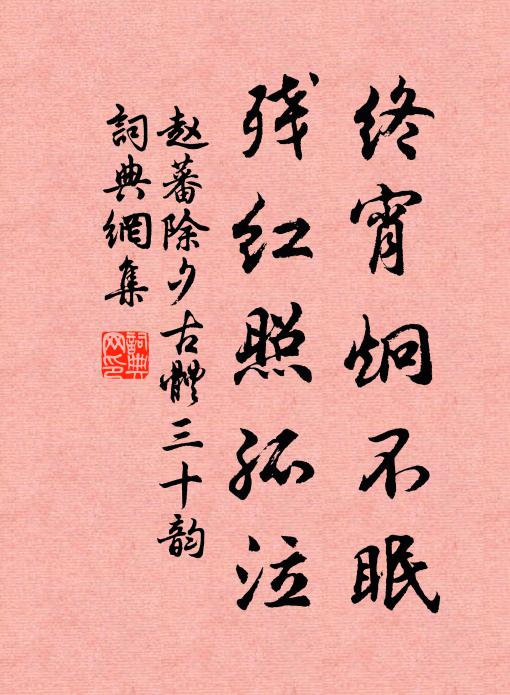 终宵炯不眠
残红照孤泣
赵蕃除夕古體三十韵
詞典網集
詞典網印